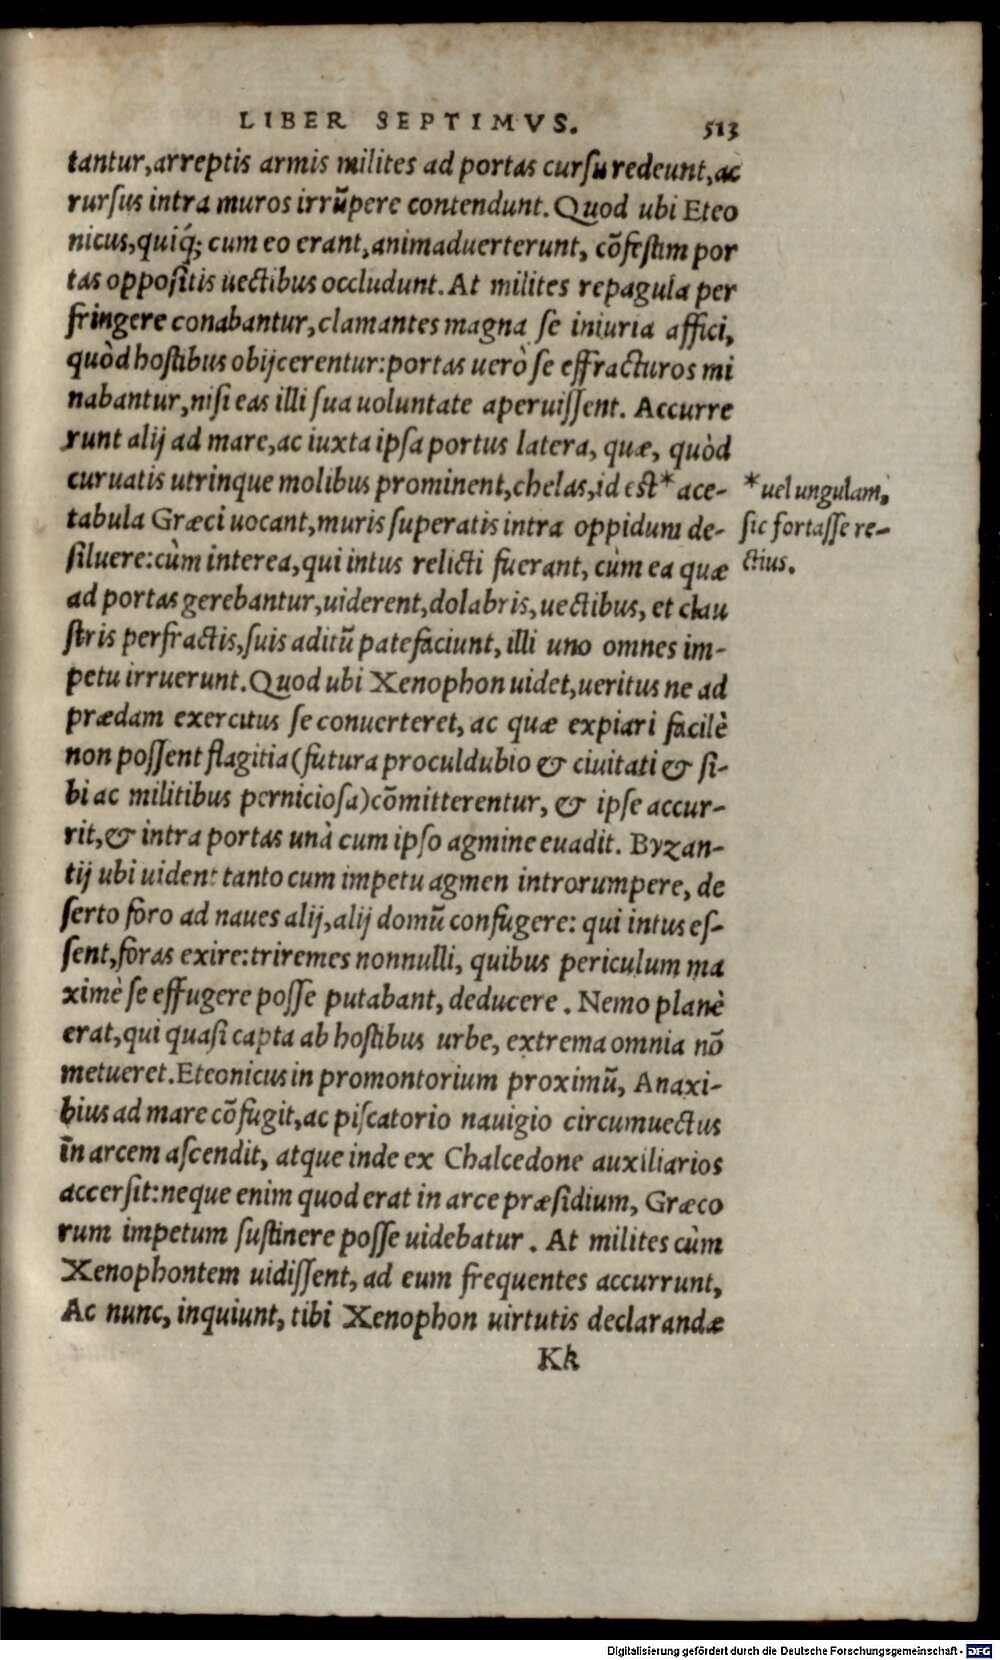 LIBER SEPTIMVS. 513
tantur,arreptis armis milites ad portas cursu redeunt,ac
rursus intra muros irrũpere contendunt. Quod ubi Eteo
nicus,quiq́; cum eo erant,animaduerterunt, cõfestim por
tas oppositis uectibus occludunt. At milites repagula per
fringere conabantur,clamantes magna se iniuria affici,
quòd hostibus obijcerentur:portas uerò se effracturos mi
nabantur,nisi eas illi sua uoluntate aperuissent. Accurre
runt alij ad mare,ac iuxta ipsa portus latera, quæ, quòd
curuatis utrinque molibus prominent,chelas,id est* ace-
tabula Græci uocant,muris superatis intra oppidum de-
siluere:cùm interea,qui intus relicti fuerant, cùm ea quæ
ad portas gerebantur,uiderent,dolabris,uectibus, et clau
stris perfractis,suis aditũ patefaciunt, illi uno omnes im-
petu irruerunt.Quod ubi Xenophon uidet,ueritus ne ad
prædam exercitus se conuerteret, ac quæ expiari facilè
non possent flagitia(futura proculdubio & ciuitati & si-
bi ac militibus perniciosa)cõmitterentur, & ipse accur-
rit,& intra portas unà cum ipso agmine euadit. Byzan-
tij ubi uident tanto cum impetu agmen introrumpere, de
serto foro ad naues alij,alij domũ confugere: qui intus es-
sent,foras exire:triremes nonnulli, quibus periculum ma
ximè se effugere posse putabant, deducere. Nemo planè
erat,qui quasi capta ab hostibus urbe, extrema omnia nõ
metueret.Eteonicus in promontorium proximũ, Anaxi-
bius ad mare cõfugit,ac piscatorio nauigio circumuectus
in arcem ascendit, atque inde ex Chalcedone auxiliarios
accersit:neque enim quod erat in arce præsidium, Græco
rum impetum sustinere posse uidebatur. At milites cùm
Xenophontem uidissent, ad eum frequentes accurrunt,
Ac nunc, inquiunt, tibi Xenophon uirtutis declarandæ
Kk
*uel ungulam,
sic fortasse re-
ctius.
Digitalisierung gefördert durch die Deutsche Forschungsgemeinschaft - DFG